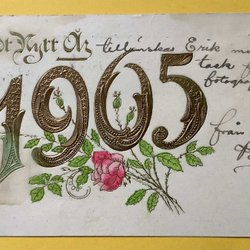 dt Nytt År
tillönskas Erik m
tack f
fotogr
1905
från